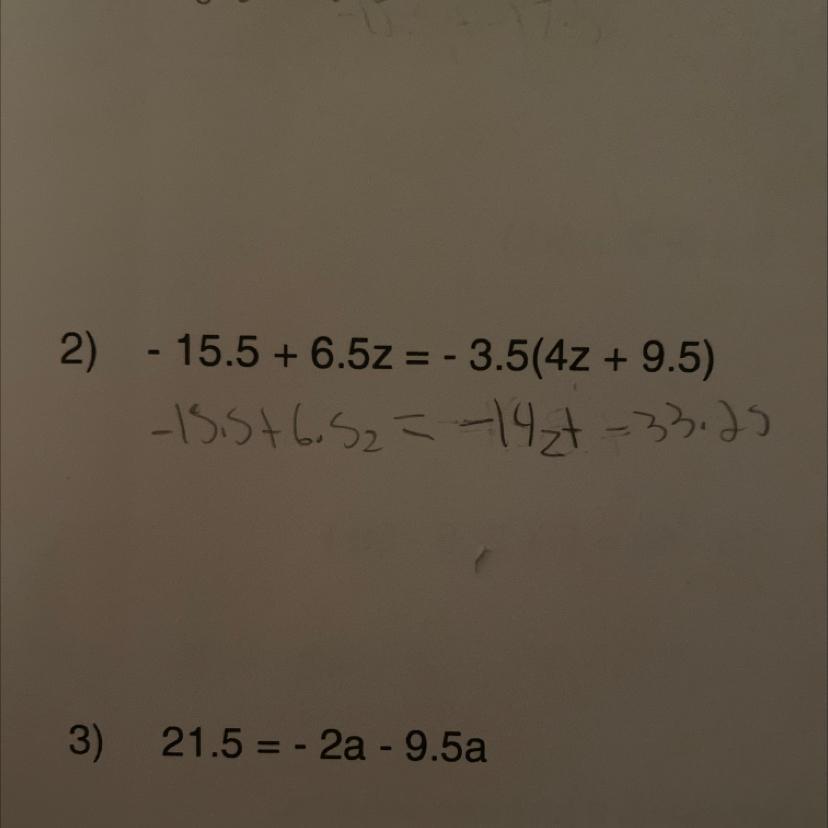 2) - 15.5 + 6.5z = - 3.5(4z + 9.5)
-15.5+6.5z = -14z+ -33.25
3) 21.5 = - 2a - 9.5a